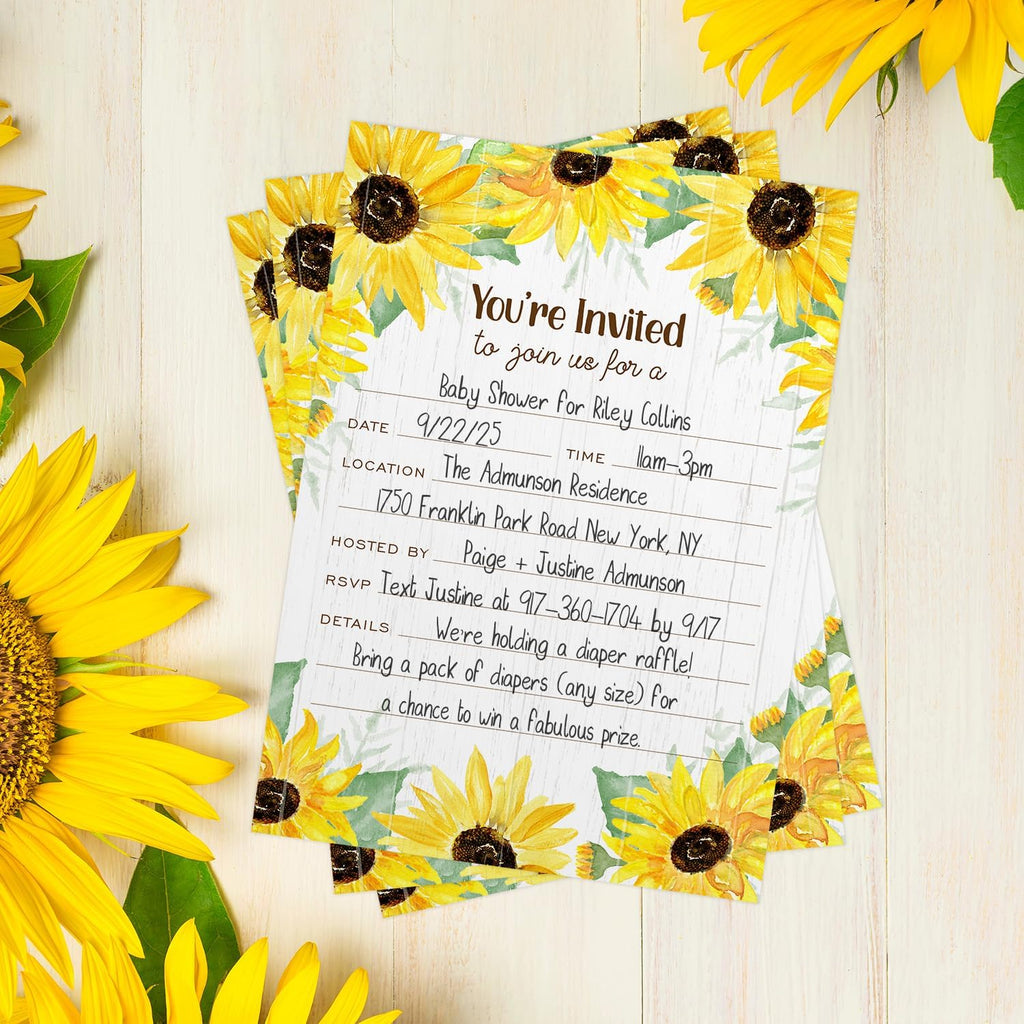 You're Invited
to join us for a
Baby Shower for Riley Collins
DATE 9/22/25 TIME 11am-3pm
LOCATION The Admunson Residence
1750 Franklin Park Road New York, NY
HOSTED BY Paige + Justine Admunson
RSVP Text Justine at 917-360-1704 by 9/17
DETAILS We're holding a diaper raffle!
Bring a pack of diapers (any size) for
a chance to win a fabulous prize.